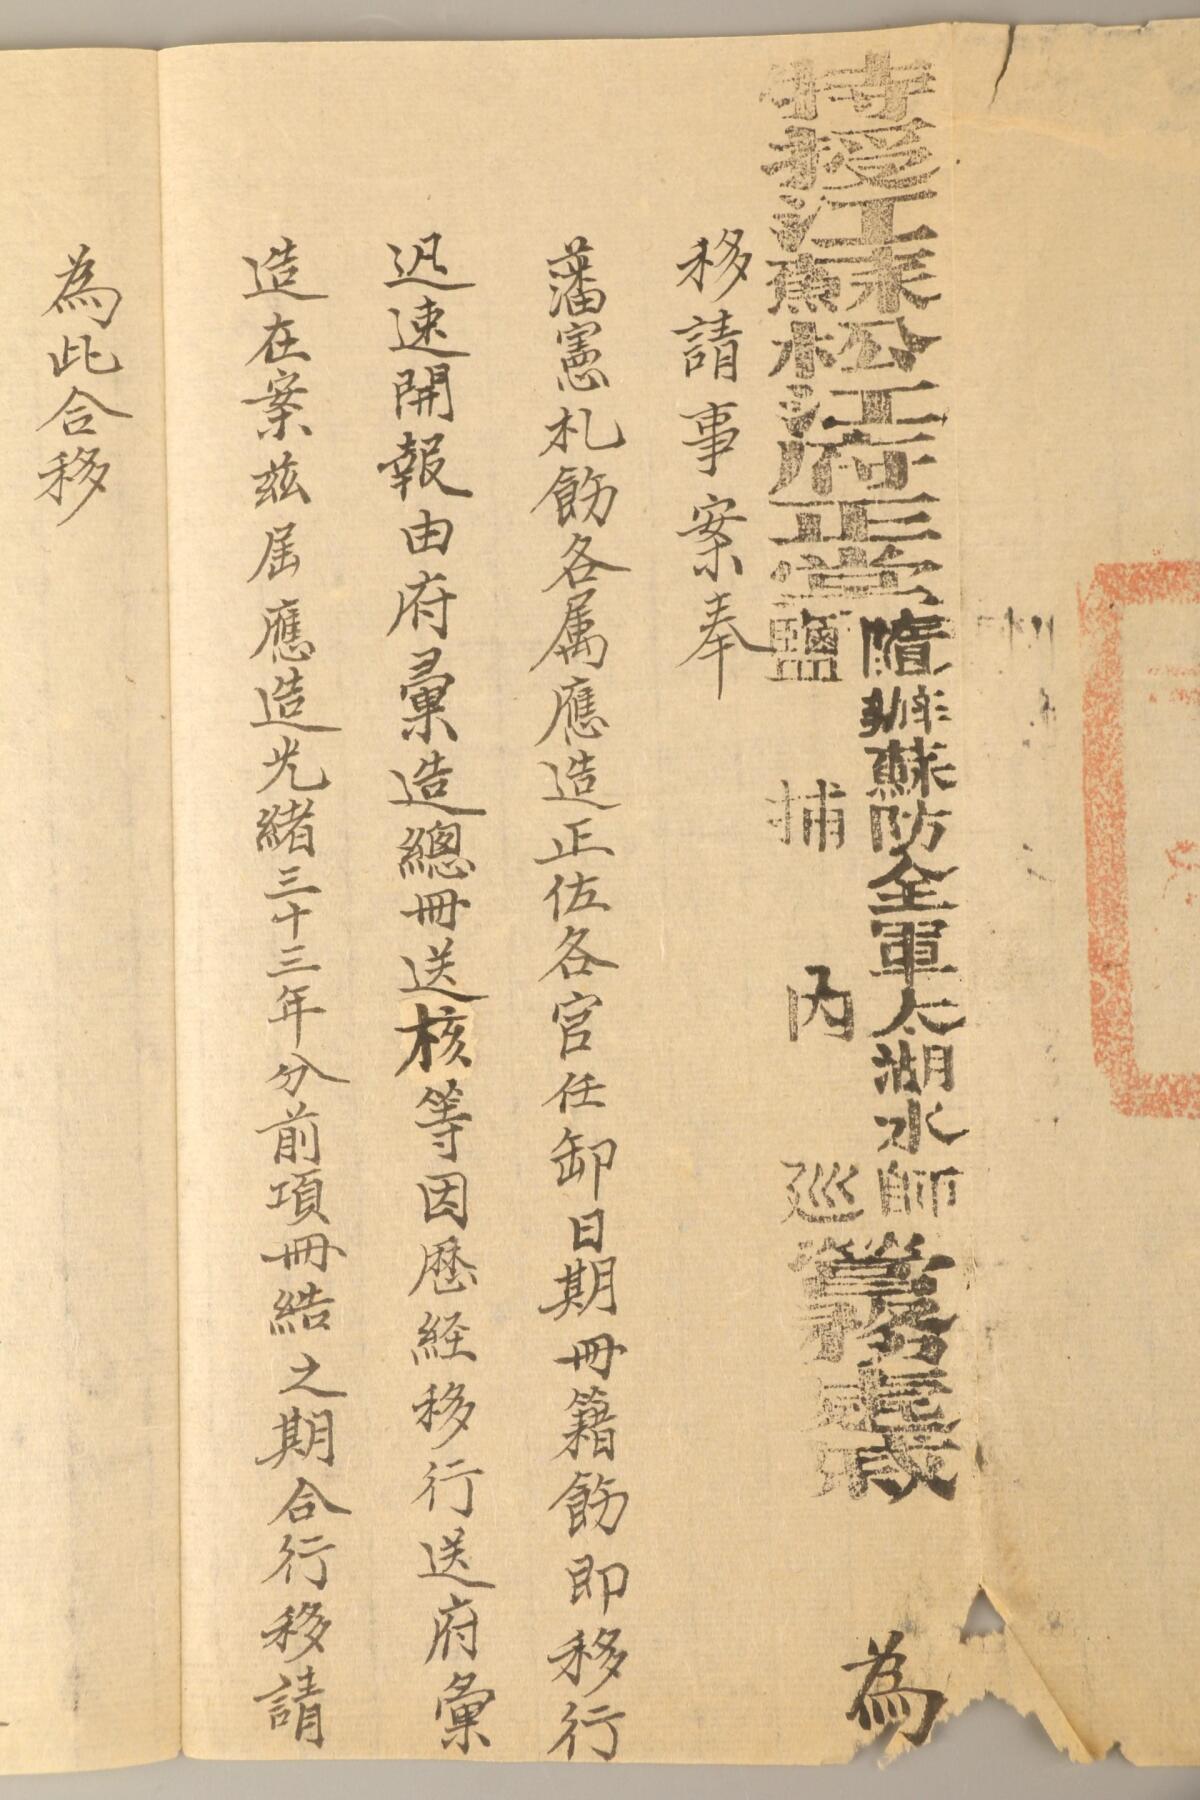 特授江蘇松江府正堂
隨辦蘇防全軍太湖水師
鹽捕內巡
營務處戚
為
移請事案奉
藩憲札飭各属應造正佐各官任卸日期冊籍飭即移行
迅速開報由府彙造總冊送核等因歷經移行送府彙
造在案茲屆應造光緒三十三年分前項冊結之期合行移請
為此合移